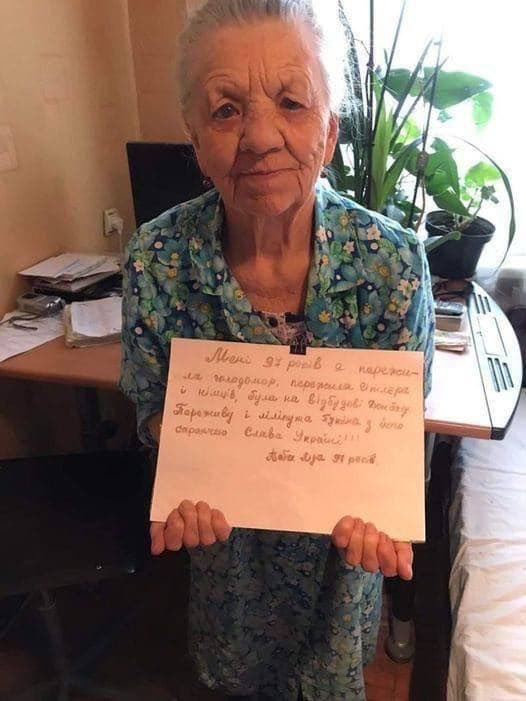 Мені 97 років я пережи-
ла голодомор, пережила Гітлера
і німців, була на відбудові Донбасу
Переживу і ліліпута Путіна з його
саранчею Слава Україні!!!
Баба Ліза 97 років.